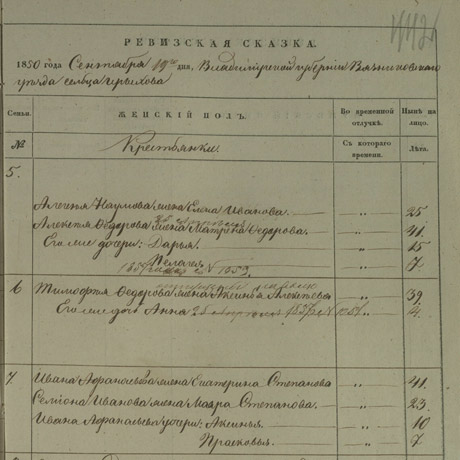 РЕВИЗСКАЯ СКАЗКА.
1850 года Сентября дня, Владимірской губерніи Вязниковского
уезда сельца
Семьи. ЖЕНСКІЙ ПОЛЪ. Во временной отлучкѣ. Нынѣ на лицо.
№ Крестьянки. Съ котораго времени. Лѣта.
5.
Наумова жена Елена Иванова. „ 25
Алексѣя Федорова жена Матрена Федорова. „ 41
Его же дочери: Дарья. „ 15
Пелагея „ 7
6 Тимофѣя Федорова жена Аксинья Алексѣева „ 39
Его же дочь Анна „ 4
7. Ивана Афанасьева жена Екатерина Степанова „ 41
Семіона Иванова жена Мавра Степанова. „ 23
Ивана Афанасьева дочери: Аксинья „ 10
Прасковья „ 7